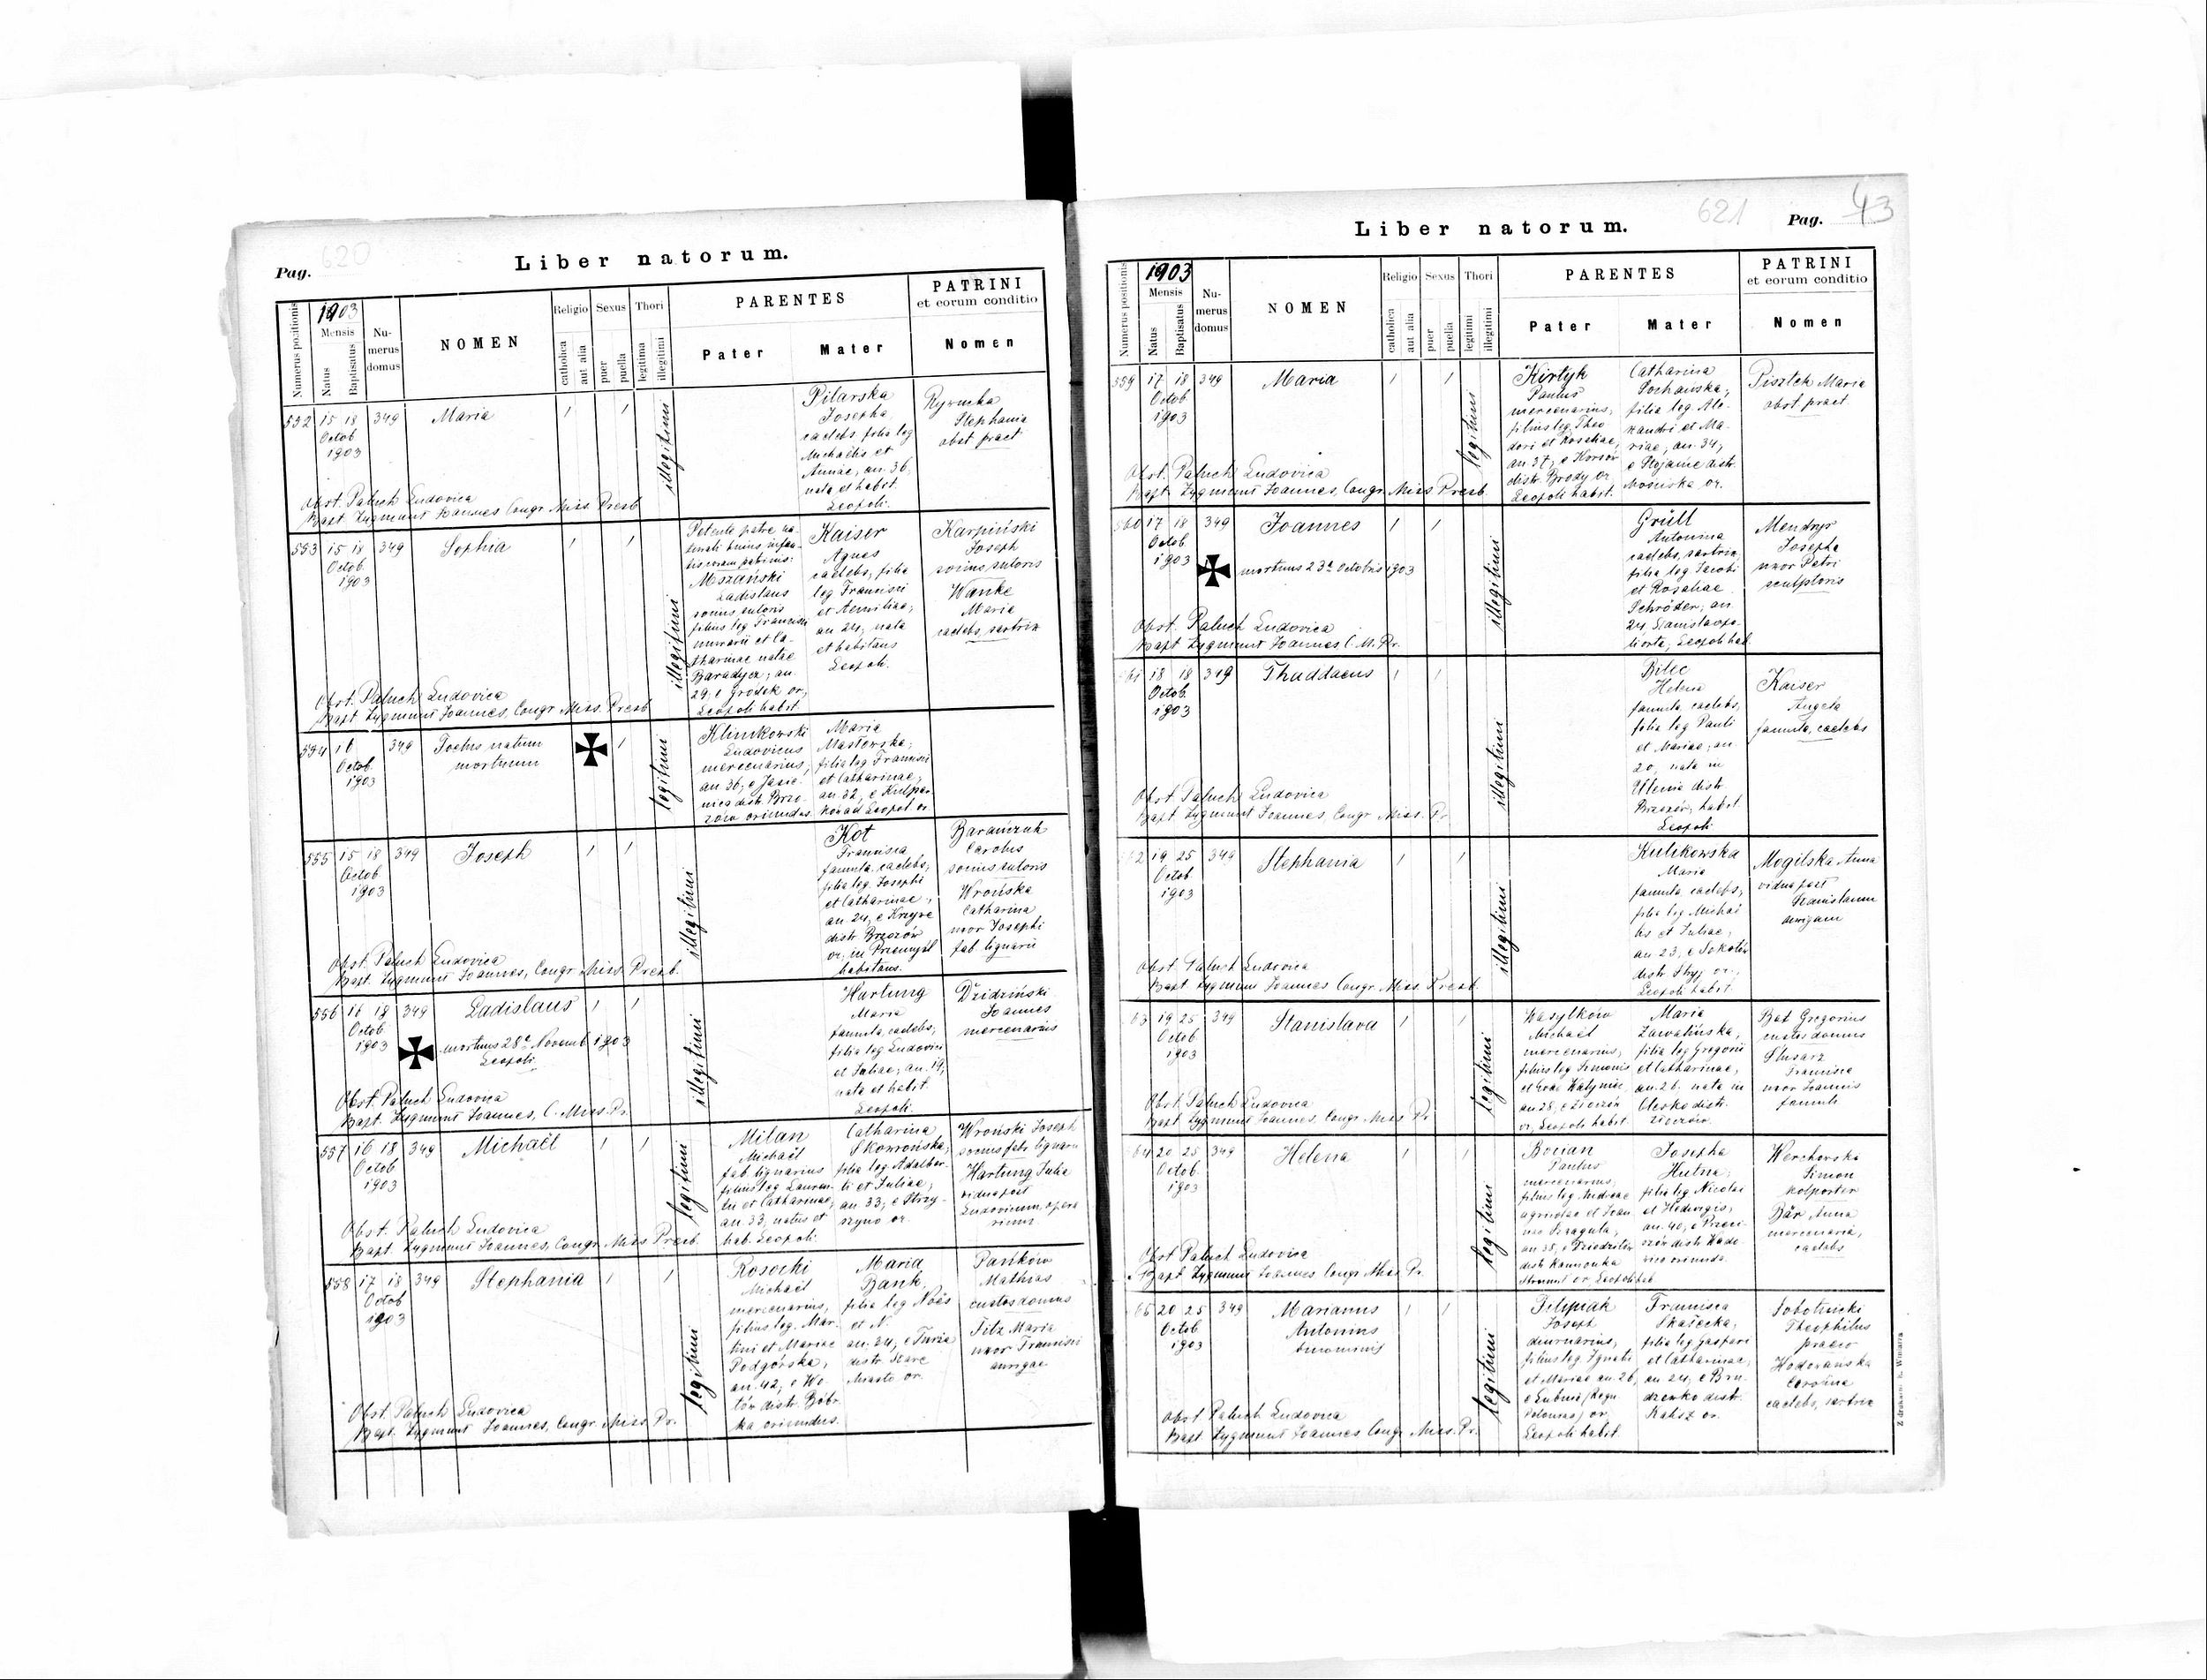 620
Pag.
Liber natorum.
Numerus positionis
1903
Mensis
Natus
Baptisatus
Nu-
merus
domus
NOMEN
Religio
catholica
aut alia
Sexus
puer
puella
Thori
legitima
illegitimi
PARENTES
Pater
Mater
PATRINI
et eorum conditio
Nomen
552 15 18 349 Maria
Octob
1903
illegitimi
Pilarska
Josepha
caelebs, filia leg
Michaëlis et
Annae, an. 36,
nata et habit.
Leopoli.
Stephania
obst. pract.
Obst. Paluch Ludovica
Bapt. Zygmunt Joannes Congr. Miss. Presb.
553 15 18 349 Sophia
Octob.
1903
illegitimi
Petente patre na-
turali huius infan-
tis coram patrinis:
Mszański
Ladislaus
socius sutoris
filius leg Francisci
murarii et Ca-
tharinae natae
Baradycz; an.
29; e Gródek or,
Leopoli habit.
Kaiser
Agnes
caelebs, filia
leg Francisci
et Aemiliae;
an 24, nata
et habitans
Leopoli.
Karpiński
Joseph
socius sutoris
Wanke
Maria
caelebs, sartrix
Obst. Paluch Ludovica
Bapt. Zygmunt Joannes, Congr. Miss. Presb.
554 16 349 Foetus natum
Octob. mortuum
1903
legitimi
Klimkowski
Ludovicus
mercenarius,
an 36, e Jasie-
nica distr. Brzo-
zów oriundus.
Maria
Masłowska;
filia leg. Francisci
et Catharinae,
an. 32, e Kulpar-
ków ad Leopol. or.
555 15 18 349 Joseph
Octob
1903
illegitimi
Kot
Francisca
famula, caelebs;
filia leg. Josephi
et Catharinae,
an 24, e Krzywe
distr. Brzozów
or, in Przemyśl
habitans.
Barańczuk
Carolus
socius sutoris
Wrońska
Catharina
uxor Josephi
fab. lignarii
Obst. Paluch Ludovica
Bapt. Zygmunt Joannes, Congr. Miss. Presb.
556 16 18 349 Ladislaus
Octob
1903 mortuus 28ª Novemb. 1903
Leopoli.
illegitimi
Hartung
Maria
famula, caelebs,
filia leg Ludovici
et Juliae, an. 19,
nata et habit.
Leopoli.
Dzidziński
Joannes
mercenarius
Obst. Paluch Ludovica
Bapt. Zygmunt Joannes, C. Miss. Pr.
557 16 18 349 Michaël
Octob
1903
legitimi
Milan
Michaël
fab. lignarius
filius leg Lauren-
tii et Catharinae,
an. 33, natus et
hab. Leopoli.
Catharina
Skowrońska,
filia leg. Adalber-
ti et Juliae,
an. 33; e Strzy-
or.
Wroński Joseph
socius fab. lignarii
Hartung Julia
vidua post
Ludovicum, opera
rium
Obst. Paluch Ludovica
Bapt. Zygmunt Joannes, Congr. Miss. Presb.
558 17 18 349 Stephania
Octob
1903
legitimi
Rosocki
Michaël
mercenarius,
filius leg. Mar-
tini et Mariae
Podgórska,
an. 42; e Wo-
distr. Bóbr-
ka oriundus.
Maria
Bank
filia leg Noës
et N.
an. 24, e Turza
distr. Stare
Miasto or.
Pańków
Mathias
custos domus
Filz Maria
uxor Francisci
aurigae
Obst. Paluch Ludovica
Bapt. Zygmunt Joannes, Congr. Miss. Pr.
621
Pag. 43
Liber natorum.
Numerus positionis
1903
Mensis
Natus
Baptisatus
Nu-
merus
domus
NOMEN
Religio
catholica
aut alia
Sexus
puer
puella
Thori
legitimi
illegitimi
PARENTES
Pater
Mater
PATRINI
et eorum conditio
Nomen
559 17 18 349 Maria
Octob
1903
legitimi
Kirtyk
Paulus
mercenarius,
filius leg. Theo
dori et Rosaliae,
an 37, e Korsów
distr. Brody or
Leopoli habit.
Catharina
Sochańska;
filia leg Ale-
xandri et Ma-
riae, an. 34;
e Stojańce distr.
Mościska or.
Pisztek Maria
obst. pract.
Obst. Paluch Ludovica
Bapt. Zygmunt Joannes, Congr. Miss Presb.
560 17 18 349 Joannes
Octob.
1903 mortuus 23ª Octobris 1903
illegitimi
Grüll
Antonina
caelebs, sartrix,
filia leg Jacobi
et Rosaliae
Schröder, an.
24, Stanislaopo-
li orta, Leopoli hab.
Mendrys
Josepha
uxor Petri
sculptoris
Obst. Paluch Ludovica
Bapt. Zygmunt Joannes, C. M. Pr.
561 18 18 349 Thaddaeus
Octob.
1903
illegitimi
Bilec
Helena
famula, caelebs,
filia leg Pauli
et Mariae, an
20, nata in
Ulenie distr
Brzozów, habit.
Leopoli
Kaiser
Angela
famula, caelebs
Obst. Paluch Ludovica
Bapt. Zygmunt Joannes Congr. Miss. Pr.
562 19 25 349 Stephania
Octob.
1903
illegitimi
Kulikowska
Maria
famula, caelebs;
filia leg Michaë
lis et Juliae,
an 23, e Sokołów
distr Stryj or.,
Leopoli habit.
Mogilska Anna
vidua post
Stanislaum
aurigam
Obst. Paluch Ludovica
Bapt. Zygmunt Joannes Congr. Miss. Presb.
63 19 25 349 Stanislava
Octob
1903
legitimi
Wasylków
Michaël
mercenarius,
filius leg Simonis
et Evae
an 28, e Złoczów
or, Leopoli habit.
Maria
Zawalińska,
filia leg Gregorii
et Catharinae,
an. 26. nata in
Olesko distr.
Złoczów.
Bat Gregorius
custos domus
Ślusarz
Francisca
uxor Joannis
famuli
Obst. Paluch Ludovica
Bapt. Zygmunt Joannes, Congr. Miss. Pr.
64 20 25 349 Helena
Octob.
1903
legitimi
Bocian
Paulus
mercenarius,
filius leg. Andreae
agricolae et Joan
nae
an 38,
distr. Kamionka
Strumil. or, Leopoli hab
Josepha
Hutna,
filia leg Nicolai
et Hedvigis,
an. 40,
Werchovska
Simon
kolporter
Bär Anna
mercenaria,
caelebs
Obst. Paluch Ludovica
Bapt. Zygmunt Joannes Congr. Miss. Pr.
65 20 25 349 Marianus
Octob. Antonius
1903 binominis
legitimi
Filipiak
Joseph
diurnarius,
filius leg Ignatii
et Mariae an. 26,
e Lubnia (Regn
Polonias) or.
Leopoli habit.
Francisca
Skałecka,
filia leg Gaspari
et Catharinae,
an 24,
distr.
or.
Sobotnicki
Theophilus
praeco
Hodovanska
Carolina
caelebs, sartrix
Obst. Paluch Ludovica
Bapt. Zygmunt Joannes Congr. Miss. Pr.
Z drukarni E. Winiarza